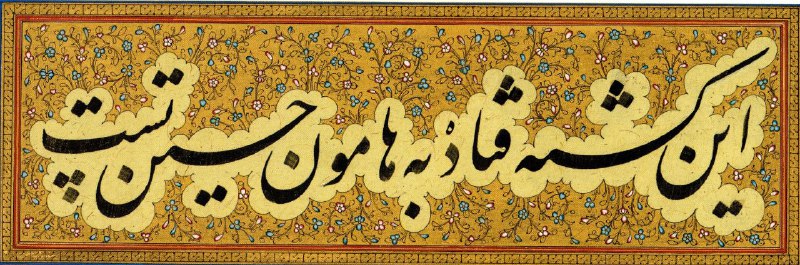 این کشته فتاده به هامون حسین تست